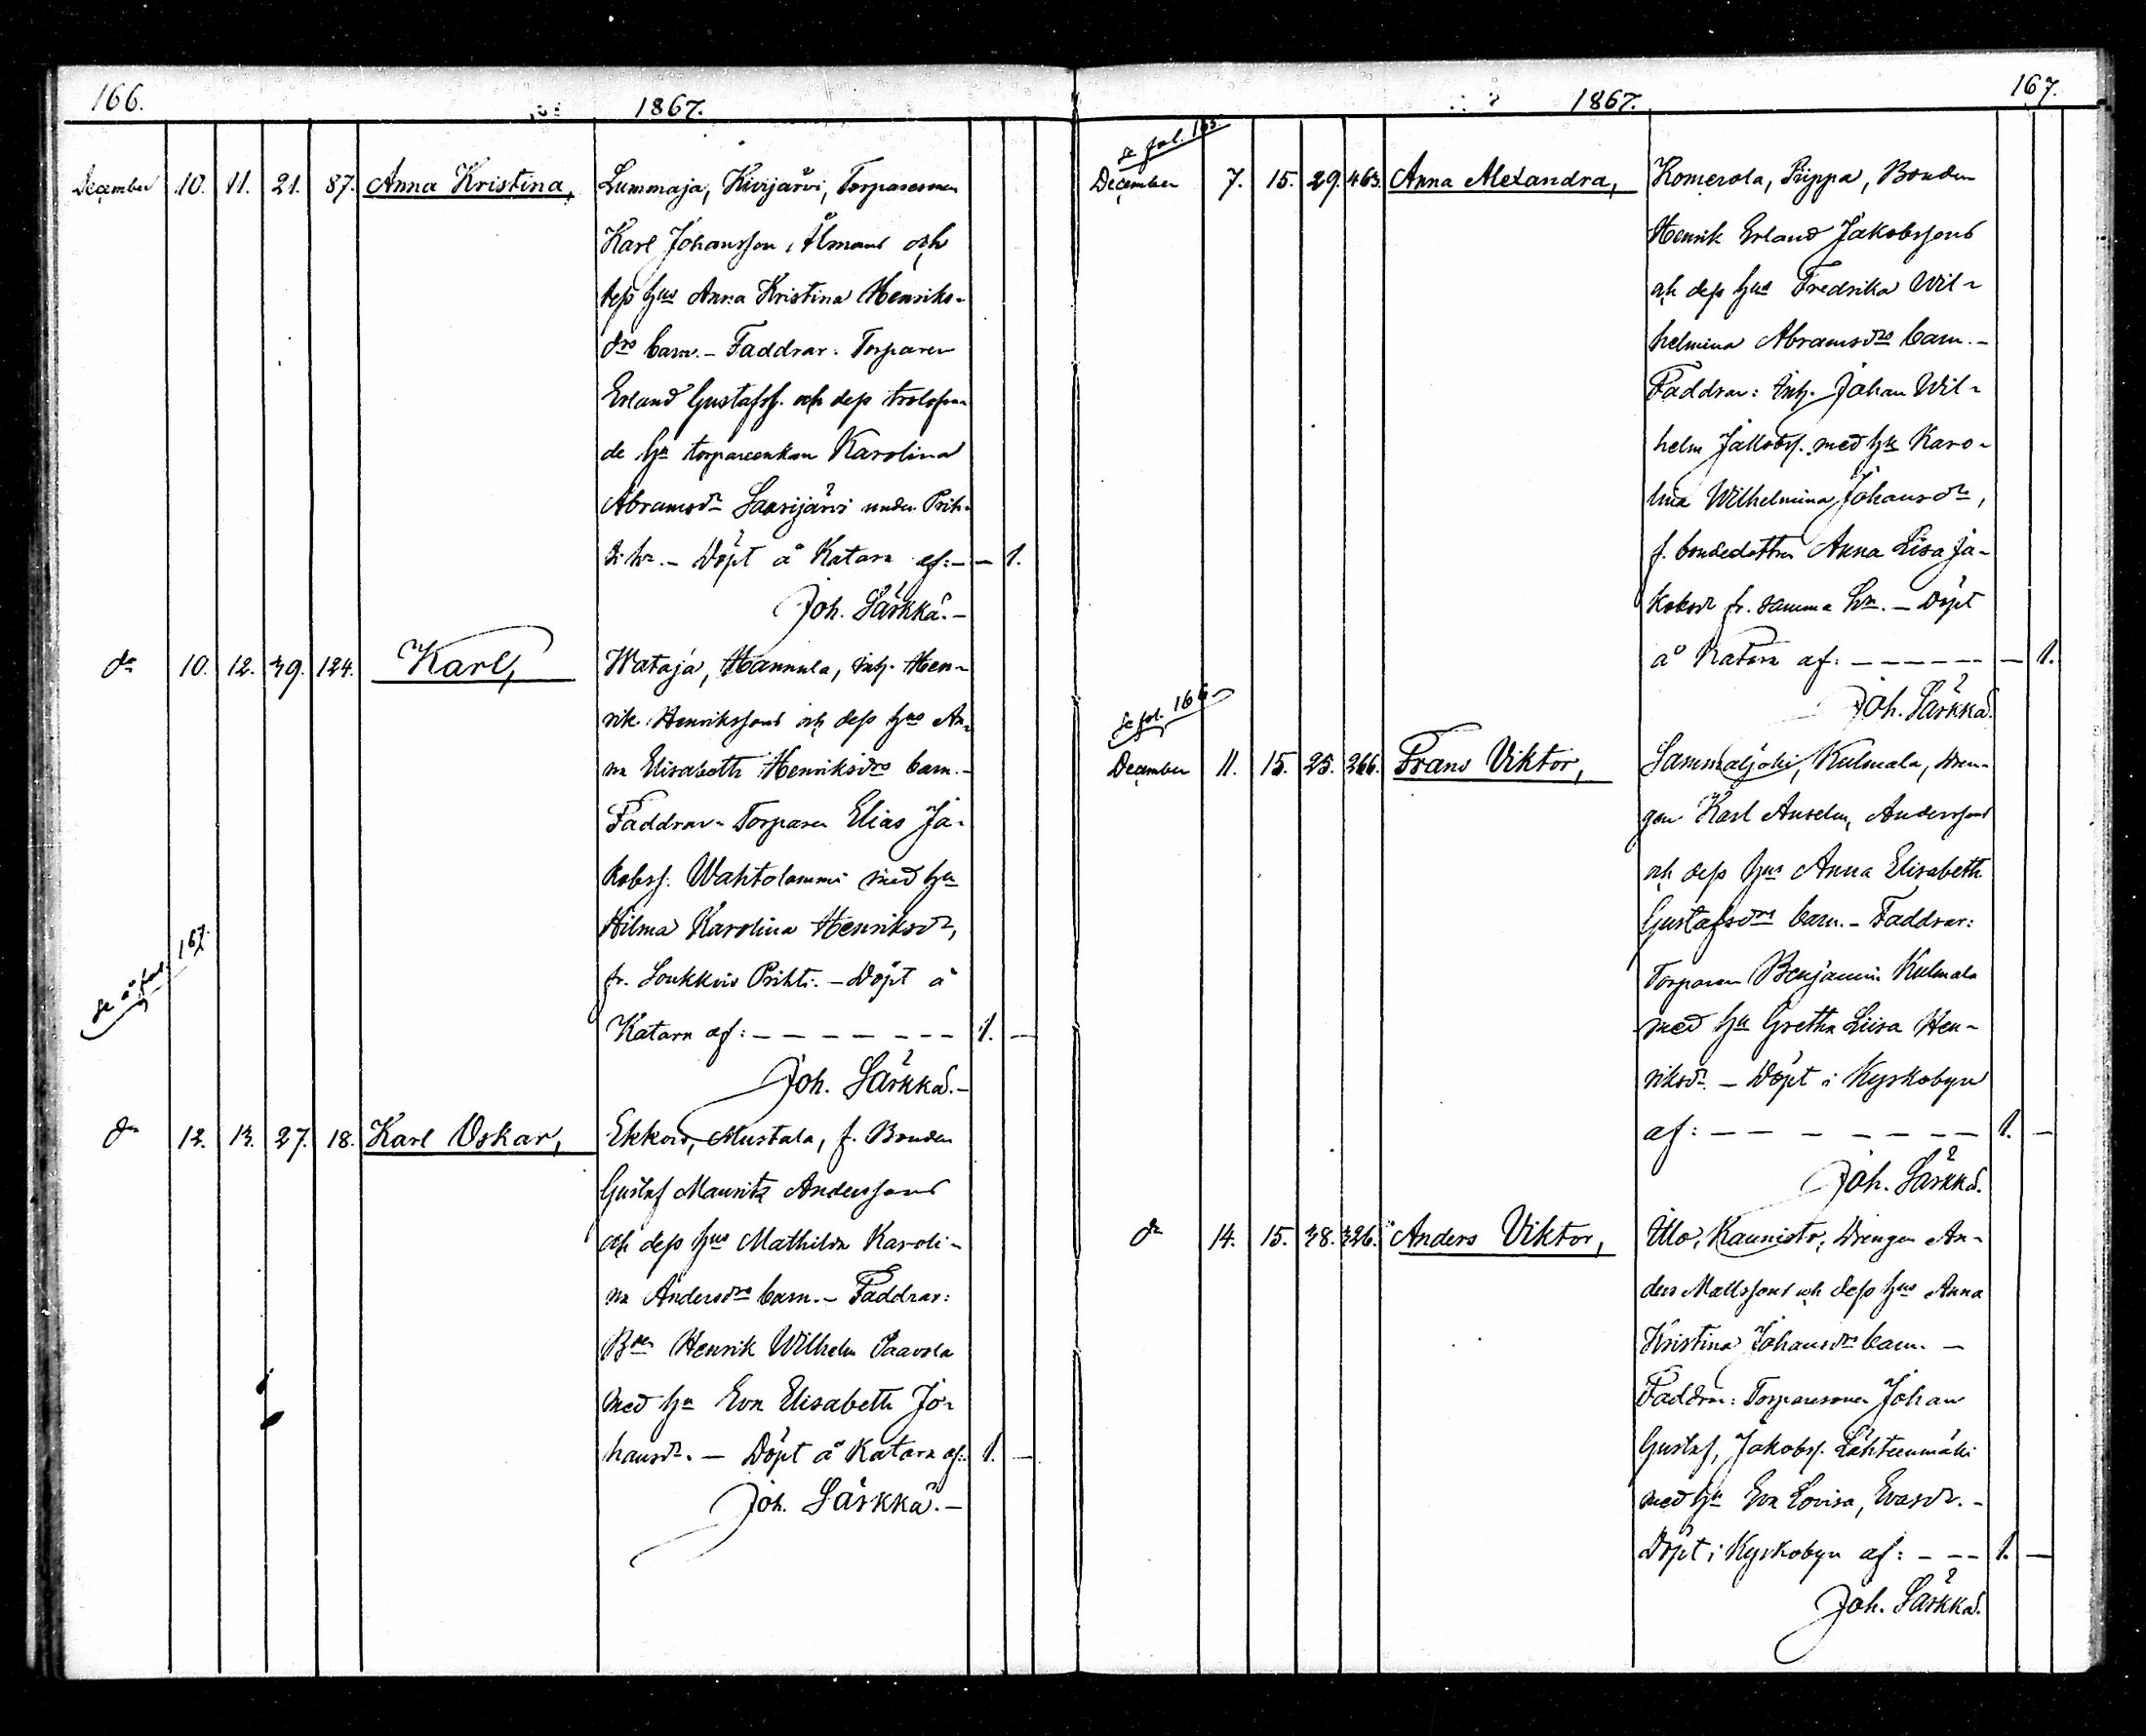 166.
1867.
December 10. 11. 21. 87. Anna Kristina, Lummaja, Kivijärvi, Torparesonen
Karl Johansson Ålmans och
dess hus Anna Kristina Henriks-
drs barn. – Faddrar: Torparen
Erland Gustafss. och dess trolofva-
de hu torpareenkan Karolina
Abramsdr Saarijärvi under Prih-
ti hn. – Döpt å Katara af: – – 1.
Joh. Särkkä. –
do 10. 12. 39. 124. Karl, Wataja, Hannula, inh. Hen-
rik Henrikssons och dess hus An-
na Elisabeth Henriksdrs barn. –
Faddrar: Torparen Elias Ja-
kobss. Wahtolammi med hu
Hilma Karolina Henriksdr,
fr. Soukkio Prihti. – Döpt å
se å fol. 167.
Katara af: – – – – – – – 1. –
Joh. Särkkä. –
do 12. 13. 27. 18. Karl Oskar, Ekkois, Mustala, f. Bonden
Gustaf Mauritz Anderssons
och dess hus Mathilda Karoli-
na Andersdrs barn. – Faddrar:
Bden Henrik Wilhelm Paavola
med hu Eva Elisabeth Jo-
hansdr. – Döpt å Katara af: 1. –
Joh. Särkkä. –
167.
1867.
se fol. 165.
December 7. 15. 29. 463. Anna Alexandra, Romerola, Piippa, Bonden
Henrik Erland Jakobssons
och dess hus Fredrika Wil-
helmina Abramsdrs barn. –
Faddrar: Inh. Johan Wil-
helm Jakobss. med hu Karo-
lina Wilhelmina Johansdr,
f. bondedottren Anna Lisa Ja-
kobsdr fr. samma hn. – Döpt
å Katara af: – – – – – – – 1.
Joh. Särkkä.
se fol. 166
December 11. 15. 25. 266. Frans Viktor, Sammaljoki, Kulmala, Dren-
gen Karl Anselm, Anderssons
och dess hus Anna Elisabeth
Gustafsdrs barn. – Faddrar:
Torparen Benjamin Kulmala
med hu Gretha Liisa Hen-
riksdr. – Döpt i Kyrkobyn
af: – – – – – – – 1. –
Joh. Särkkä.
do 14. 15. 38. 326. Anders Viktor, Illo, Kaunisto, Drengen An-
ders Mattssons och dess hus Anna
Kristina Johansdrs barn. –
Faddrar: Torparesonen Johan
Gustaf, Jakobss. Lähteenmäki
med hu Eva Lovisa, Evasdr. –
Döpt i Kyrkobyn af: – – – 1. –
Joh. Särkkä.